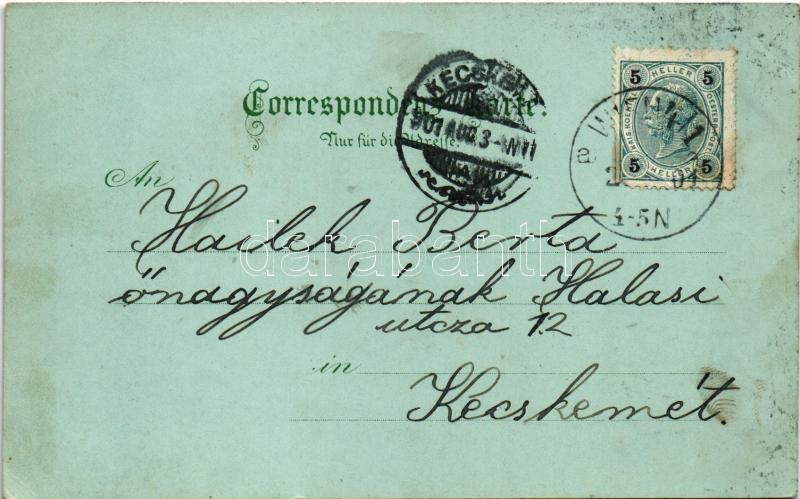 Correspondenz-Karte.
Nur für die Adresse.
KECSKEMÉT
901 AUG. 3
5 HELLER 5
5 HELLER 5
WIEN
4-5N
An
Hadek Berta
őnagyságának Halasi
utcza 12
in
Kecskemét
darabanth